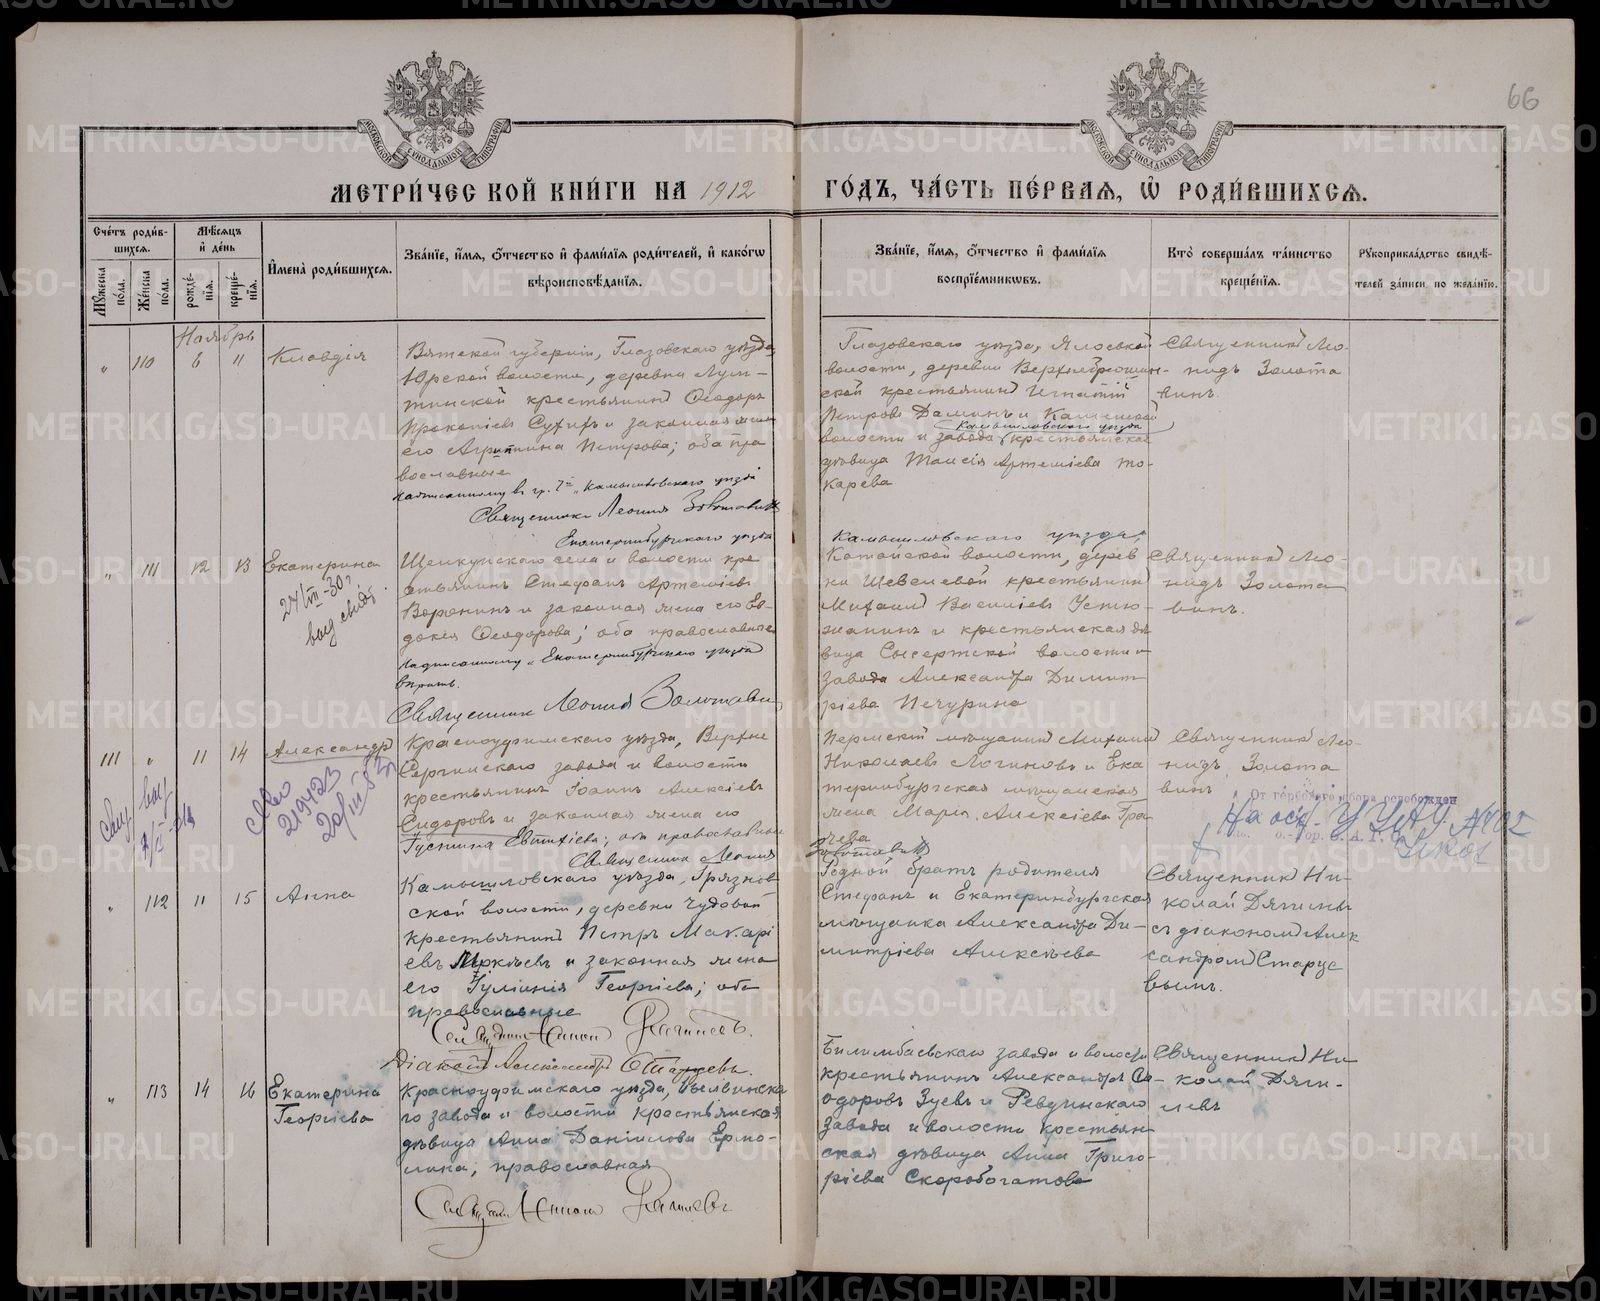 66
МОСКОВСКОЙ СѴНОДАЛЬНОЙ ТИПОГРАФІИ
МОСКОВСКОЙ СѴНОДАЛЬНОЙ ТИПОГРАФІИ
МЕТРИ́ЧЕС КОЙ КНИ́ГИ НА 1912 ГО́ДЪ, ЧА́СТЬ ПЕ́РВАѦ, Ѡ҆ РОДИ́ВШИХСѦ.
Сче́тъ роди́в-
шихсѧ.
Мꙋ́жеска по́ла.
Же́нска по́ла.
Мѣ́сѧцъ
и҆ де́нь
рожде́-
нїѧ.
креще́-
нїѧ.
И҆мена̀ роди́вшихсѧ.
Зва́нїе, и҆́мѧ, ѻ҆́тчество и҆ фами́лїѧ роди́телей, и҆ како́гѡ
вѣроисповѣ́данїѧ.
Зва́нїе, и҆́мѧ, ѻ҆́тчество и҆ фами́лїѧ
воспрїе́мникѡвъ.
Кто̀ соверша́лъ та́инство
креще́нїѧ.
Рꙋкоприкла́дство свидѣ́-
телей за́писи по жела́нїю.
Ноябрь
" 110 6 11 Клавдія
Вятской губерніи, Глазовскаго уѣзда,
Юрской волости, деревни Лум-
пинской крестьянинъ Ѳеодоръ
Прокопіевъ и законная жена
его Агрипина Петрова; оба пра
вославные
Надписанному въ гр. 7й „Камышловскаго уѣзда
Священникъ Леонидъ Золотавинъ
Глазовскаго уѣзда,
волости, деревни
ской крестьянинъ Игнатій
Петровъ и Каменской
Камышловскаго уѣзда
волости и завода крестьянская
дѣвица Таисія Артеміева То-
карева
Священникъ Лео-
нидъ Золота
винъ.
" 111 12 13 Екатерина
24/VII-30г
выд свидѣт.
Екатеринбургскаго уѣзда
Щелкунскаго села и волости кре
стьянинъ Стефанъ Артеміевъ
Воронинъ и законная жена его Ев
докія Ѳеодорова; оба православные
Надписанному „Екатеринбургскаго уѣзда
вѣрить.
Священникъ Леонидъ Золотавинъ
Камышловскаго уѣзда,
Катайской волости, дерев
ни Шевелевой крестьянинъ
Михаилъ Василіевъ Устю-
жанинъ и крестьянская дѣ
вица Сысертской волости и
завода Александра Димит
ріева Печурина
Священникъ Лео-
нидъ Золота
винъ.
111 " 11 14 Александръ
Красноуфимскаго уѣзда, Верхне
Сергинскаго завода и волости
крестьянинъ Іоаннъ Алексіевъ
Сидоровъ и законная жена его
Іустина Евтихіева; оба православные
Священникъ Леонидъ
Золотавинъ
Пермскій мѣщанинъ Михаилъ
Николаевъ Логиновъ и Ека
теринбургская мѣщанская
жена Марія Алексіева Гра
чева
Священникъ Лео-
нидъ Золота
винъ
От гербового сбора освобожден
На осн.
" 112 11 15 Анна
Камышловскаго уѣзда, Грязнов
ской волости, деревни Чудовой
крестьянинъ Петръ Макарі
евъ и законная жена
его Іуліанія Георгіева; оба
православные
Діаконъ Александръ Старцевъ.
Родной братъ родителя
Стефанъ и Екатеринбургская
мѣщанка Александра Ди-
митріева Алексѣева
Священникъ Ни-
колай Дягилевъ
съ діакономъ Алек
сандромъ Старце
вымъ.
" 113 14 16 Екатерина
Георгіева
Красноуфимскаго уѣзда,
го завода и волости крестьянская
дѣвица Анна Даніилова Ермо-
лина, православная
Билимбаевскаго завода и волости
крестьянинъ Александръ Ѳе-
одоровъ Зуевъ и Ревдинскаго
завода и волости крестьян-
ская дѣвица Анна Григо-
ріева Скоробогатова
Священникъ Ни
колай Дяги-
левъ
METRIKI.GASO-URAL.RU